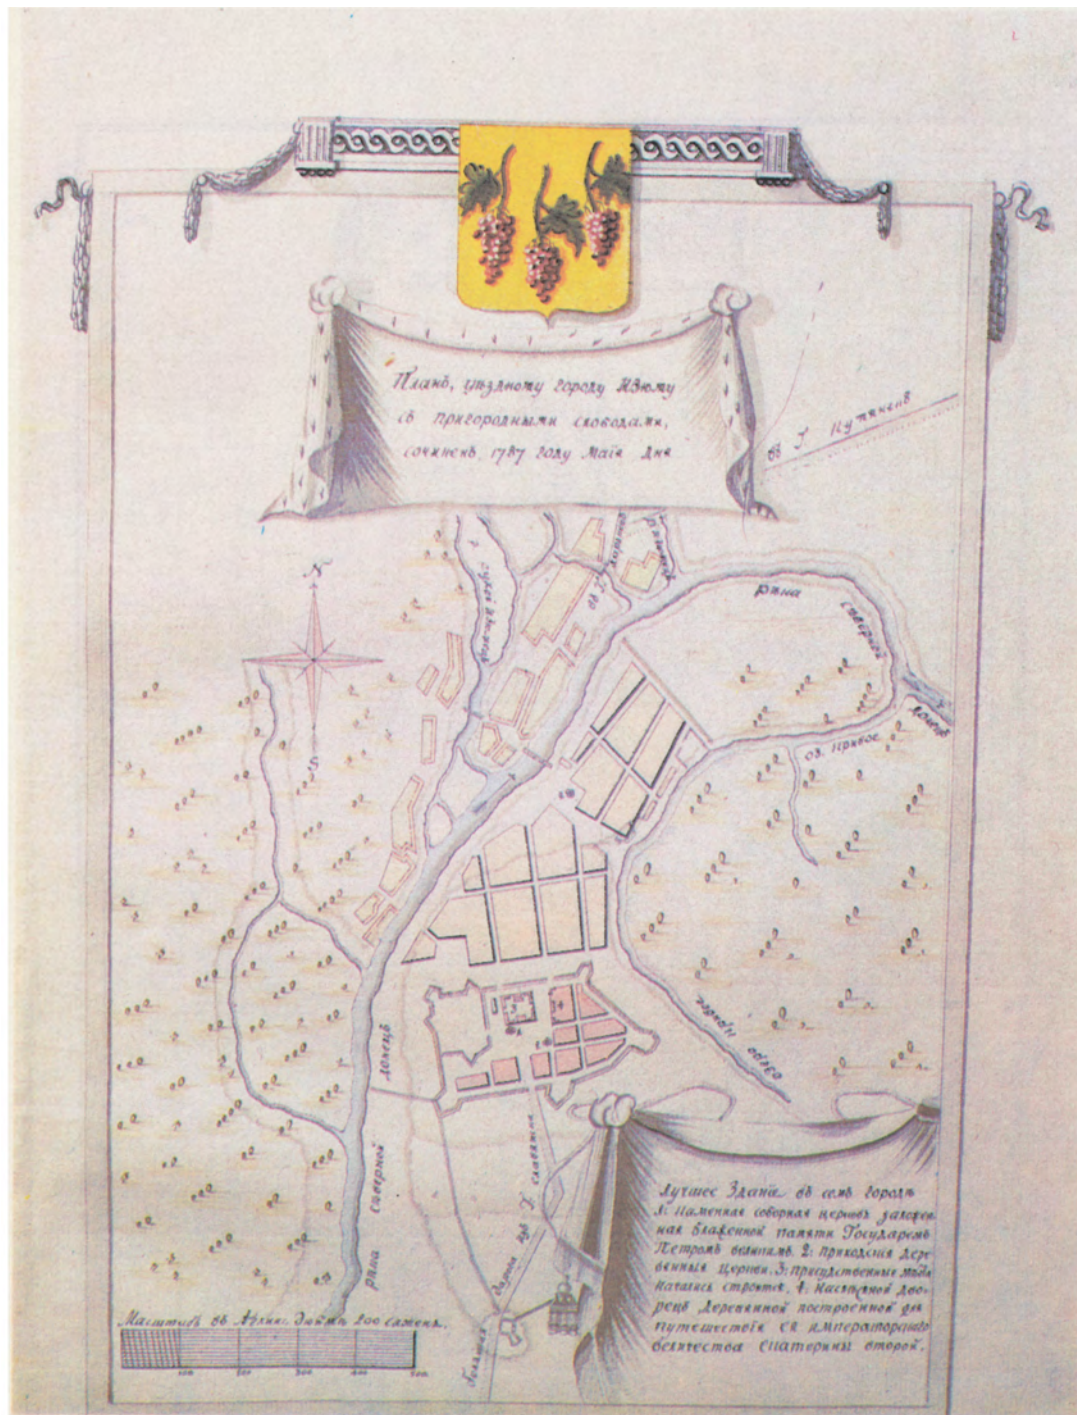 Планъ, уѣздному городу Изюму
съ пригородными слободами,
сочиненъ, 1787 году Маїя дня
въ Г. Купянскъ
N
S
рѣка
Сѣверной
Донецъ
оз. Кривое
озеро
Донецъ
Сѣверной
рѣка
дорога изъ Г. Славянска
Лучшее Зданїе въ семъ городѣ
1: Каменная соборная церковь заложен-
ная блаженной памяти Государемъ
Петромъ великимъ. 2: приходскїя дере-
вянныя церкви. 3: присудственные мѣста
начались строится. 4: дво-
рецъ деревянной построенной для
путешествїя ея императорскаго
величества Екатерины второй.
Масштабъ въ Аглин: дюймѣ 200 сажень.
100 200 300 400 500